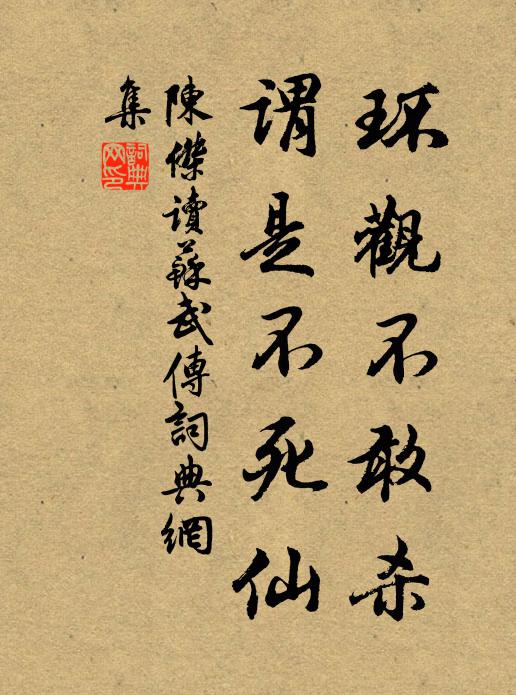 环觀不敢杀
謂是不死仙
陳傑讀蘇武傳詞典網
集
詞典网印